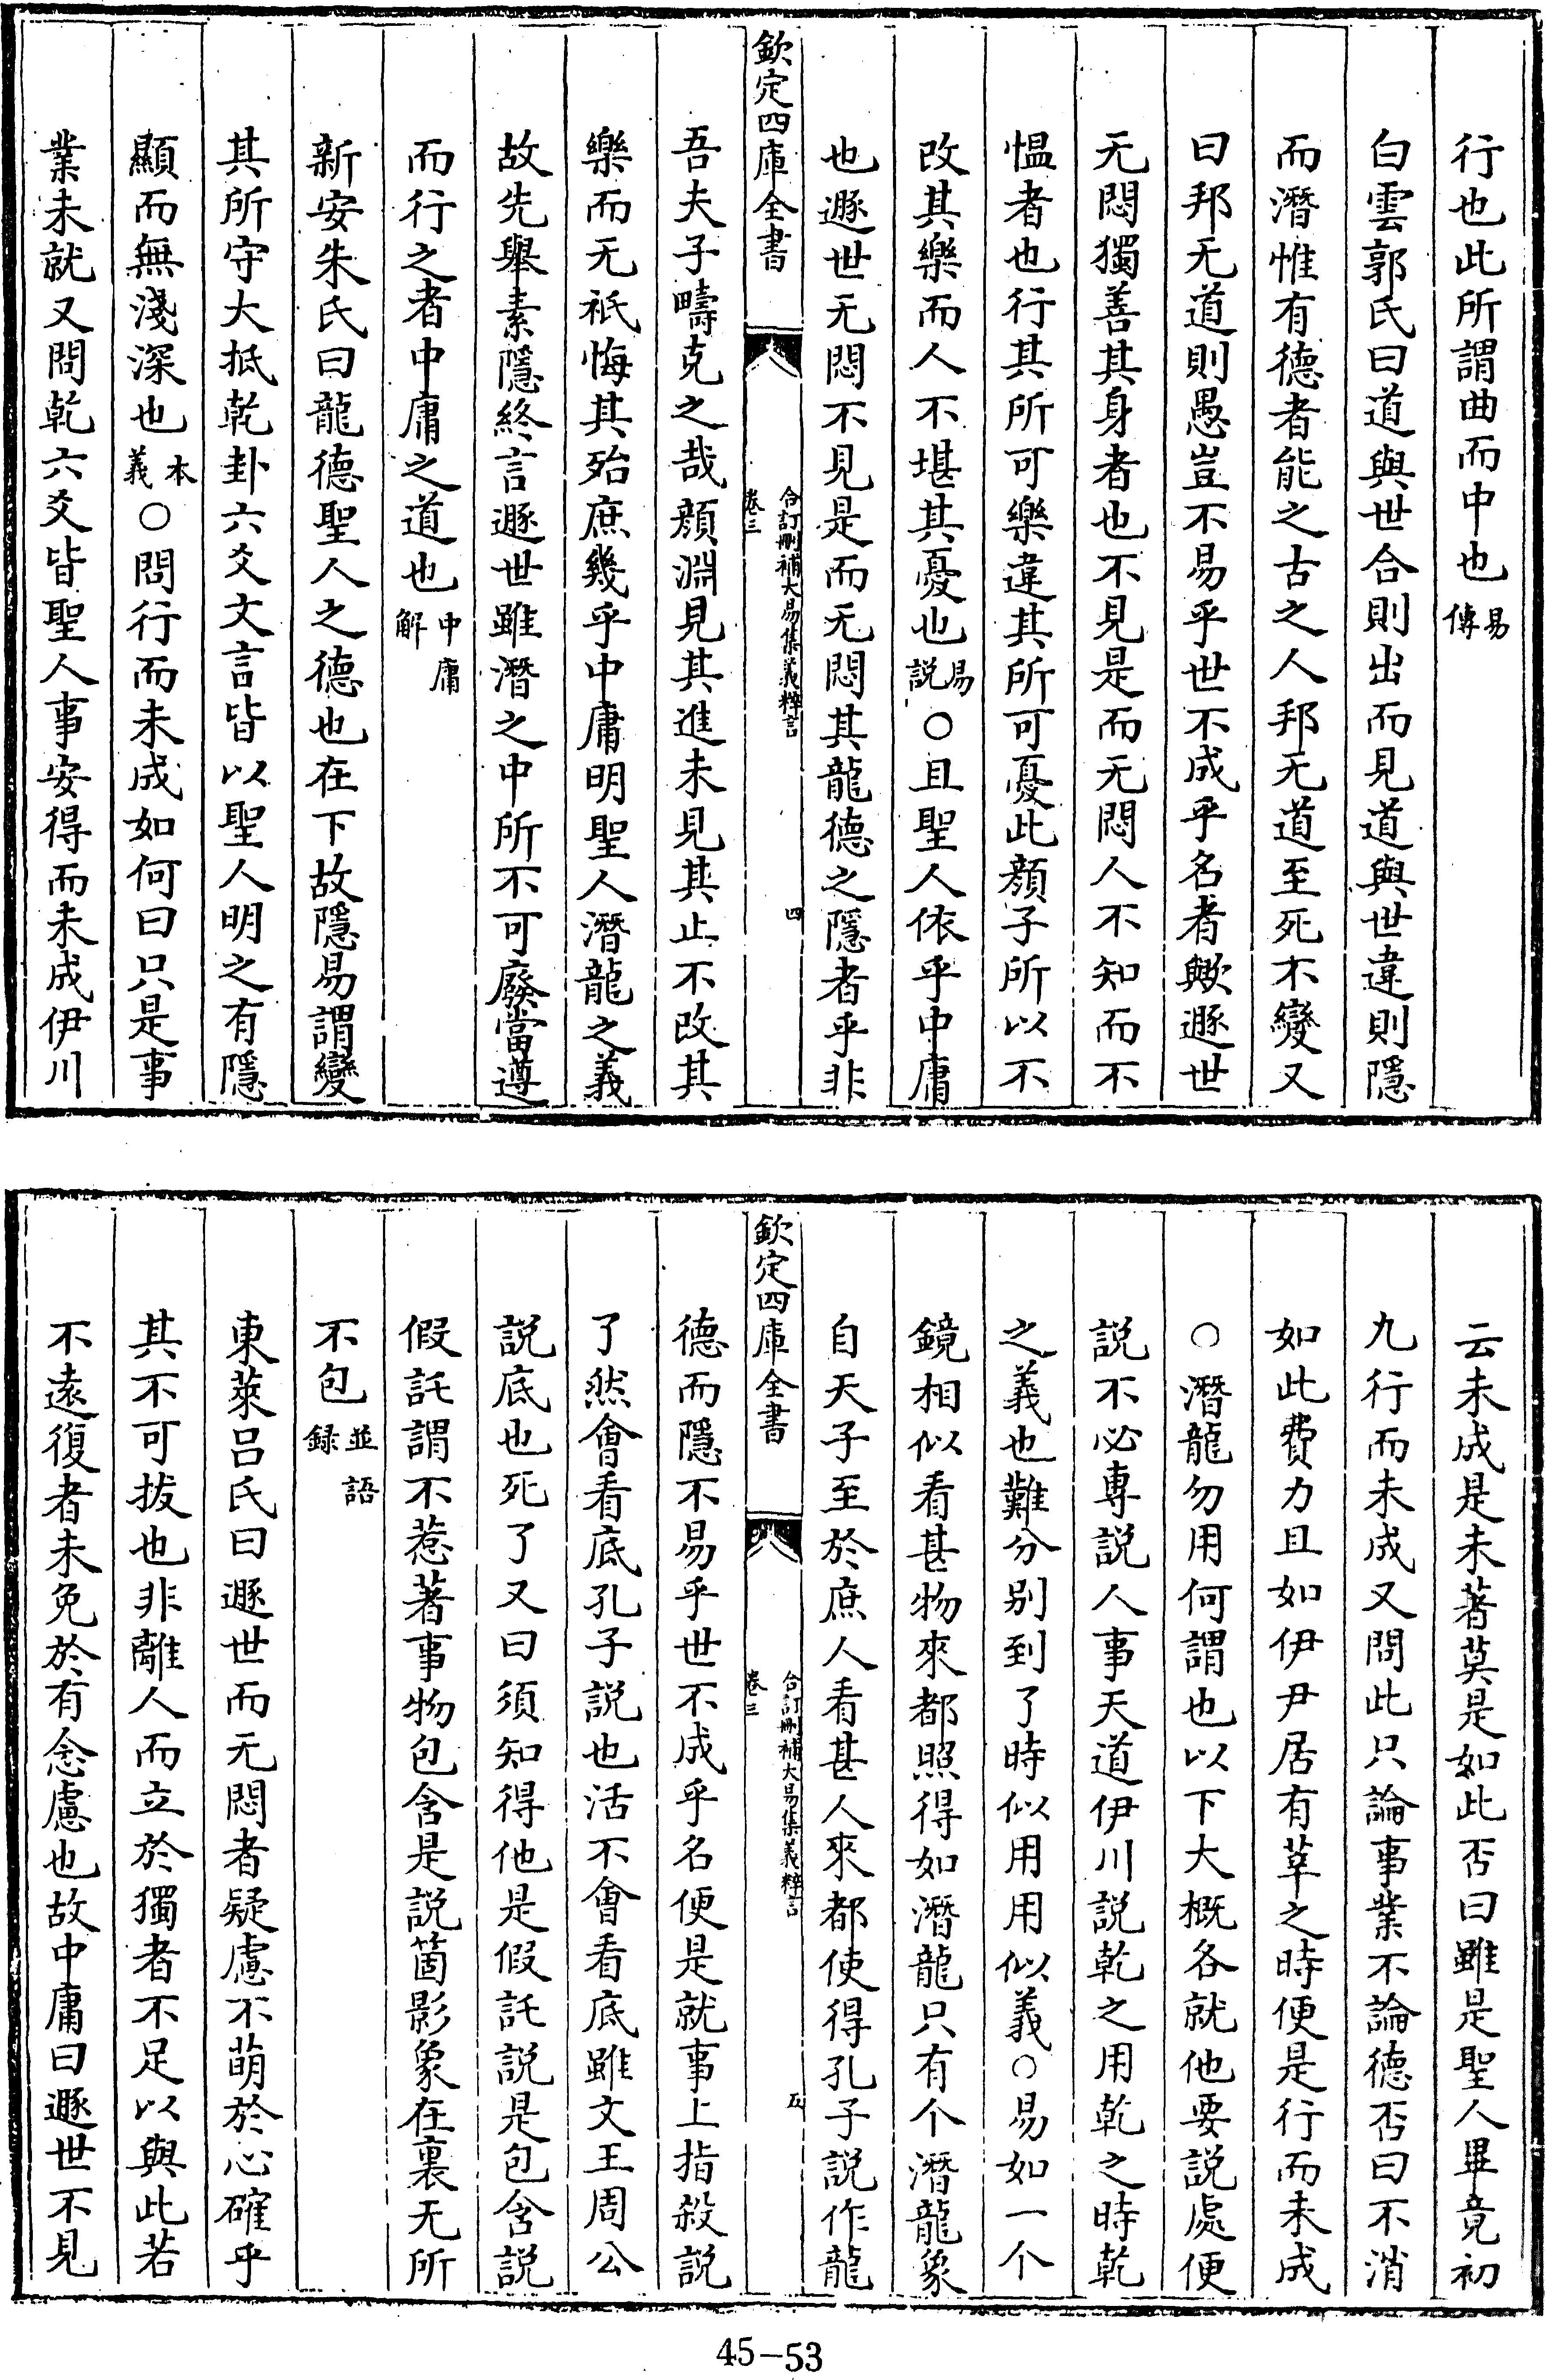 行也此所謂曲而中也易傳
白雲郭氏曰道與世合則出而見道與世違則隱
而潛惟有德者能之古之人邦无道至死不變又
曰邦无道則愚豈不易乎世不成乎名者歟遯世
无悶獨善其身者也不見是而无悶人不知而不
愠者也行其所可樂違其所可憂此顏子所以不
改其樂而人不堪其憂也易説○且聖人依乎中庸
也遯世无悶不見是而无悶其龍德之隱者乎非
欽定四庫全書
合訂刪補大易集義粹言
卷三
四
吾夫子疇克之哉顏淵見其進未見其止不改其
樂而无祇悔其殆庶幾乎中庸明聖人潛龍之義
故先舉素隱終言遯世雖潛之中所不可廢當遵
而行之者中庸之道也中庸解
新安朱氏曰龍德聖人之德也在下故隱易謂變
其所守大抵乾卦六爻文言皆以聖人明之有隱
顯而無淺深也本義○問行而未成如何曰只是事
業未就又問乾六爻皆聖人事安得而未成伊川
云未成是未著莫是如此否曰雖是聖人畢竟初
九行而未成又問此只論事業不論德否曰不消
如此費力且如伊尹居有莘之時便是行而未成
○潛龍勿用何謂也以下大概各就他要説處便
説不必專説人事天道伊川説乾之用乾之時乾
之義也難分别到了時似用用似義○易如一个
鏡相似看甚物來都照得如潛龍只有个潛龍象
自天子至於庶人看甚人來都使得孔子説作龍
欽定四庫全書
合訂刪補大易集義粹言
卷三
五
德而隱不易乎世不成乎名便是就事上指殺説
了然會看底孔子説也活不會看底雖文王周公
説底也死了又曰須知得他是假託説是包含説
假託謂不惹著事物包含是説箇影象在裏无所
不包並語録
東萊呂氏曰遯世而无悶者疑慮不萌於心確乎
其不可拔也非離人而立於獨者不足以與此若
不遠復者未免於有念慮也故中庸曰遯世不見
45-53